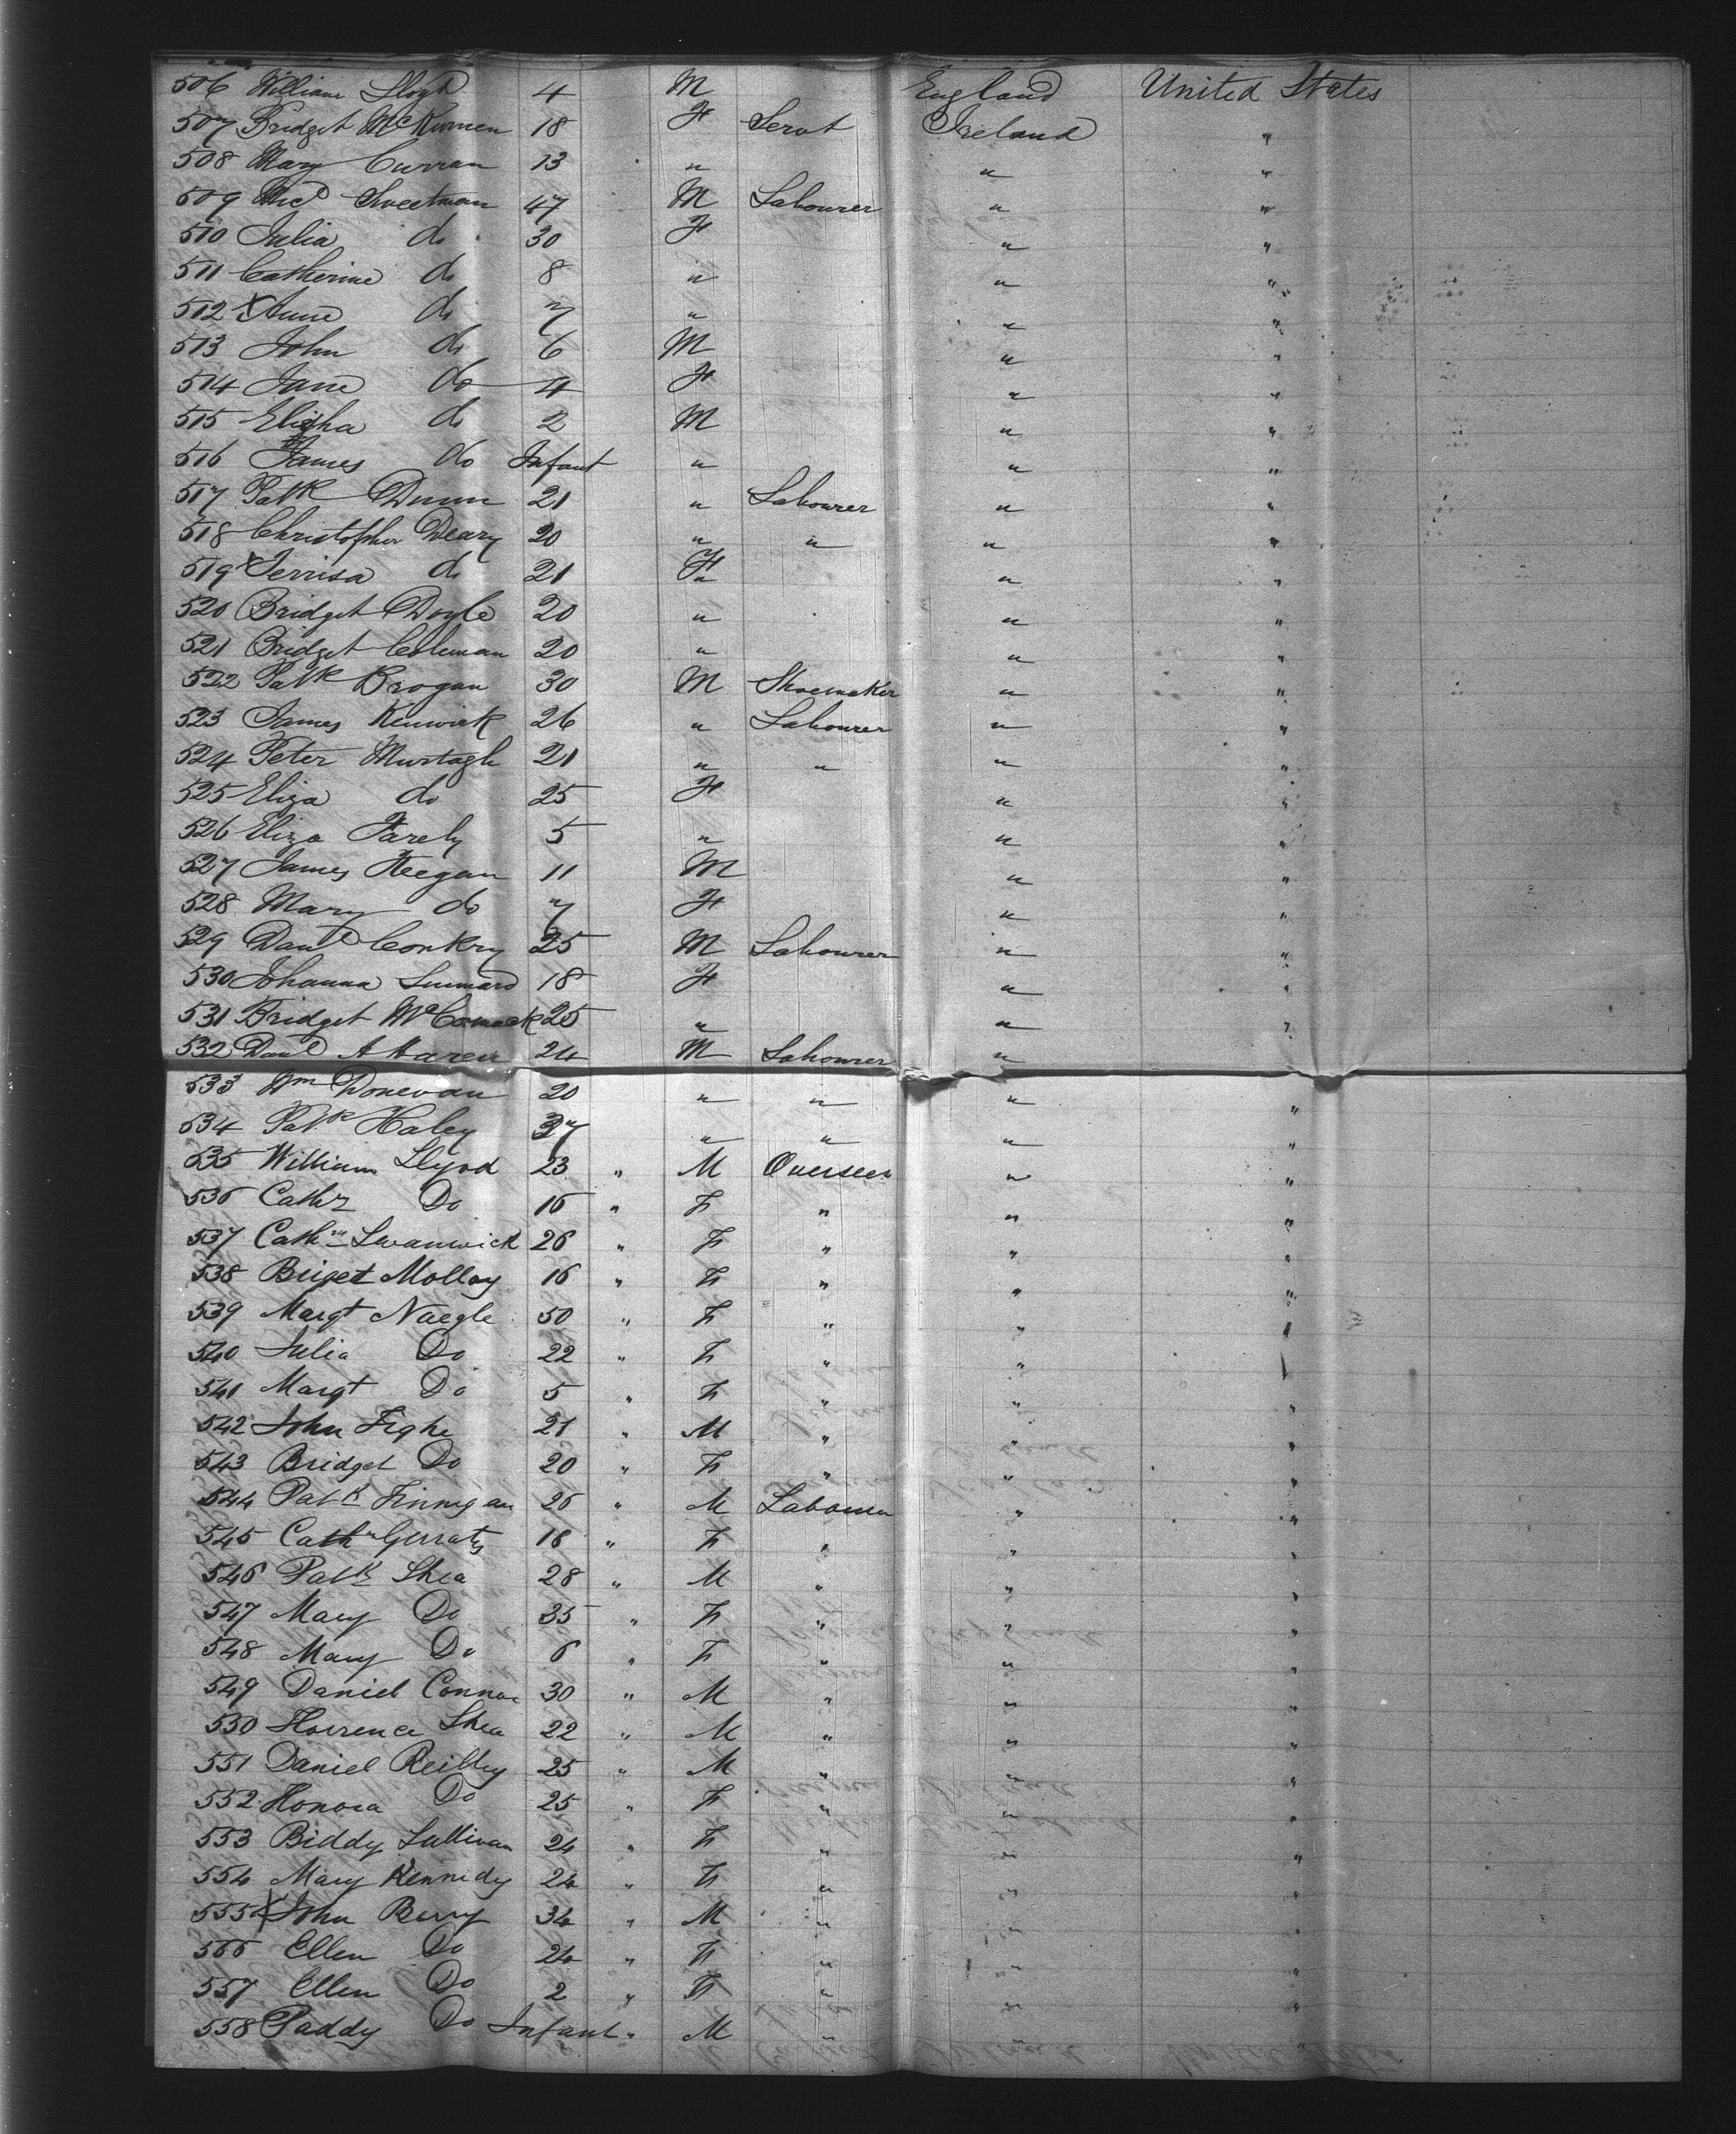 506 William Lloyd 4 M England United States
507 Bridget McKiernen 18 F Servt Ireland "
508 Mary Curran 13 " " "
509 Micl Sweetman 47 M Labourer " "
510 Julia do 30 F " "
511 Catherine do 8 " " "
512 x Anne do 7 " " "
513 John do 6 M " "
514 Jane do 4 F " "
515 Elisha do 2 M " "
516 James do Infant " " "
517 Patk Dunn 21 " Labourer " "
518 Christopher Deary 20 " " " "
519 x Terrisa do 21 F " "
520 Bridget Doyle 20 " " "
521 Bridget Coleman 20 " " "
522 Patk Brogan 30 M Shoemaker " "
523 James Kenwick 26 " Labourer " "
524 Peter Murtagh 21 " " " "
525 Eliza do 25 F " "
526 Eliza Farely 5 " " "
527 James Keegan 11 M " "
528 Mary do 7 F " "
529 Danl Conkry 25 M Labourer " "
530 Johanna 18 F " "
531 Bridget McComack 25 " " "
532 Danl 24 M Labourer "
533 Wm Donevan 20 " " " "
534 Patk Haley 37 " " " "
535 William Llyod 23 " M Overseer " "
536 Cathr Do 16 " F " " "
537 Cathn Swanwick 26 " F " " "
538 Briget Molloy 16 " F " " "
539 Margt Naegle 50 " F " " "
540 Julia Do 22 " F " " "
541 Margt Do 5 " F " " "
542 John Fighe 21 " M " " "
543 Bridget Do 20 " F " " "
544 Patk Finnigan 26 " M Labourer " "
545 Cathn Gerraty 18 " F " " "
546 Patk Shea 28 " M " " "
547 Mary Do 35 " F " " "
548 Mary Do 6 " F " " "
549 Daniel Connor 30 " M " " "
550 Florrence Shea 22 " M " " "
551 Daniel Reilley 25 " M " " "
552 Honora Do 25 " F " " "
553 Biddy Sullivan 24 " F " " "
554 Mary Kennidy 24 " F " " "
555 x John Berry 34 " M " " "
566 Ellen Do 24 " F " " "
557 Ellen Do 2 " F " " "
558 Paddy Do Infant " M " " "